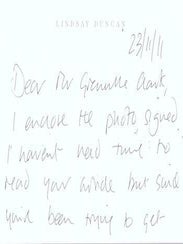 LINDSAY DUNCAN
23/11/11
Dear Mr Grenville Clark,
I enclose the photo signed
I haven't had time to
read your article but since
you'd been trying to get